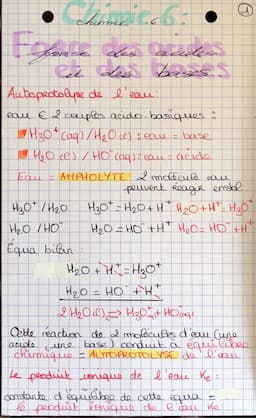 1
Chimie 6:
Force des acides
et des bases
Autoprotolyse de l'eau:
eau ∈ 2 couples acido-basiques :
H₃O⁺(aq)/H₂O(l) : eau = base
H₂O(l)/HO⁻(aq) : eau = acide
Eau = AMPHOLYTE 2 molécules eau
peuvent réagir ensbl
H₃O⁺/H₂O H₃O⁺ = H₂O + H⁺ H₂O + H⁺ = H₃O⁺
H₂O/HO⁻ H₂O = HO⁻ + H⁺ H₂O = HO⁻ + H⁺
Équa bilan :
H₂O + H⁺ = H₃O⁺
H₂O = HO⁻ + H⁺
2 H₂O(l) ⇌ H₃O⁺ + HO⁻(aq)
Cette réaction de 2 molécules d'eau (une
acide, une base) conduit à équilibre
chimique = AUTOPROTOLYSE de l'eau
Le produit ionique de l'eau Ke :
constante d'équilibre de cette équa =
le produit ionique de l'eau Ke